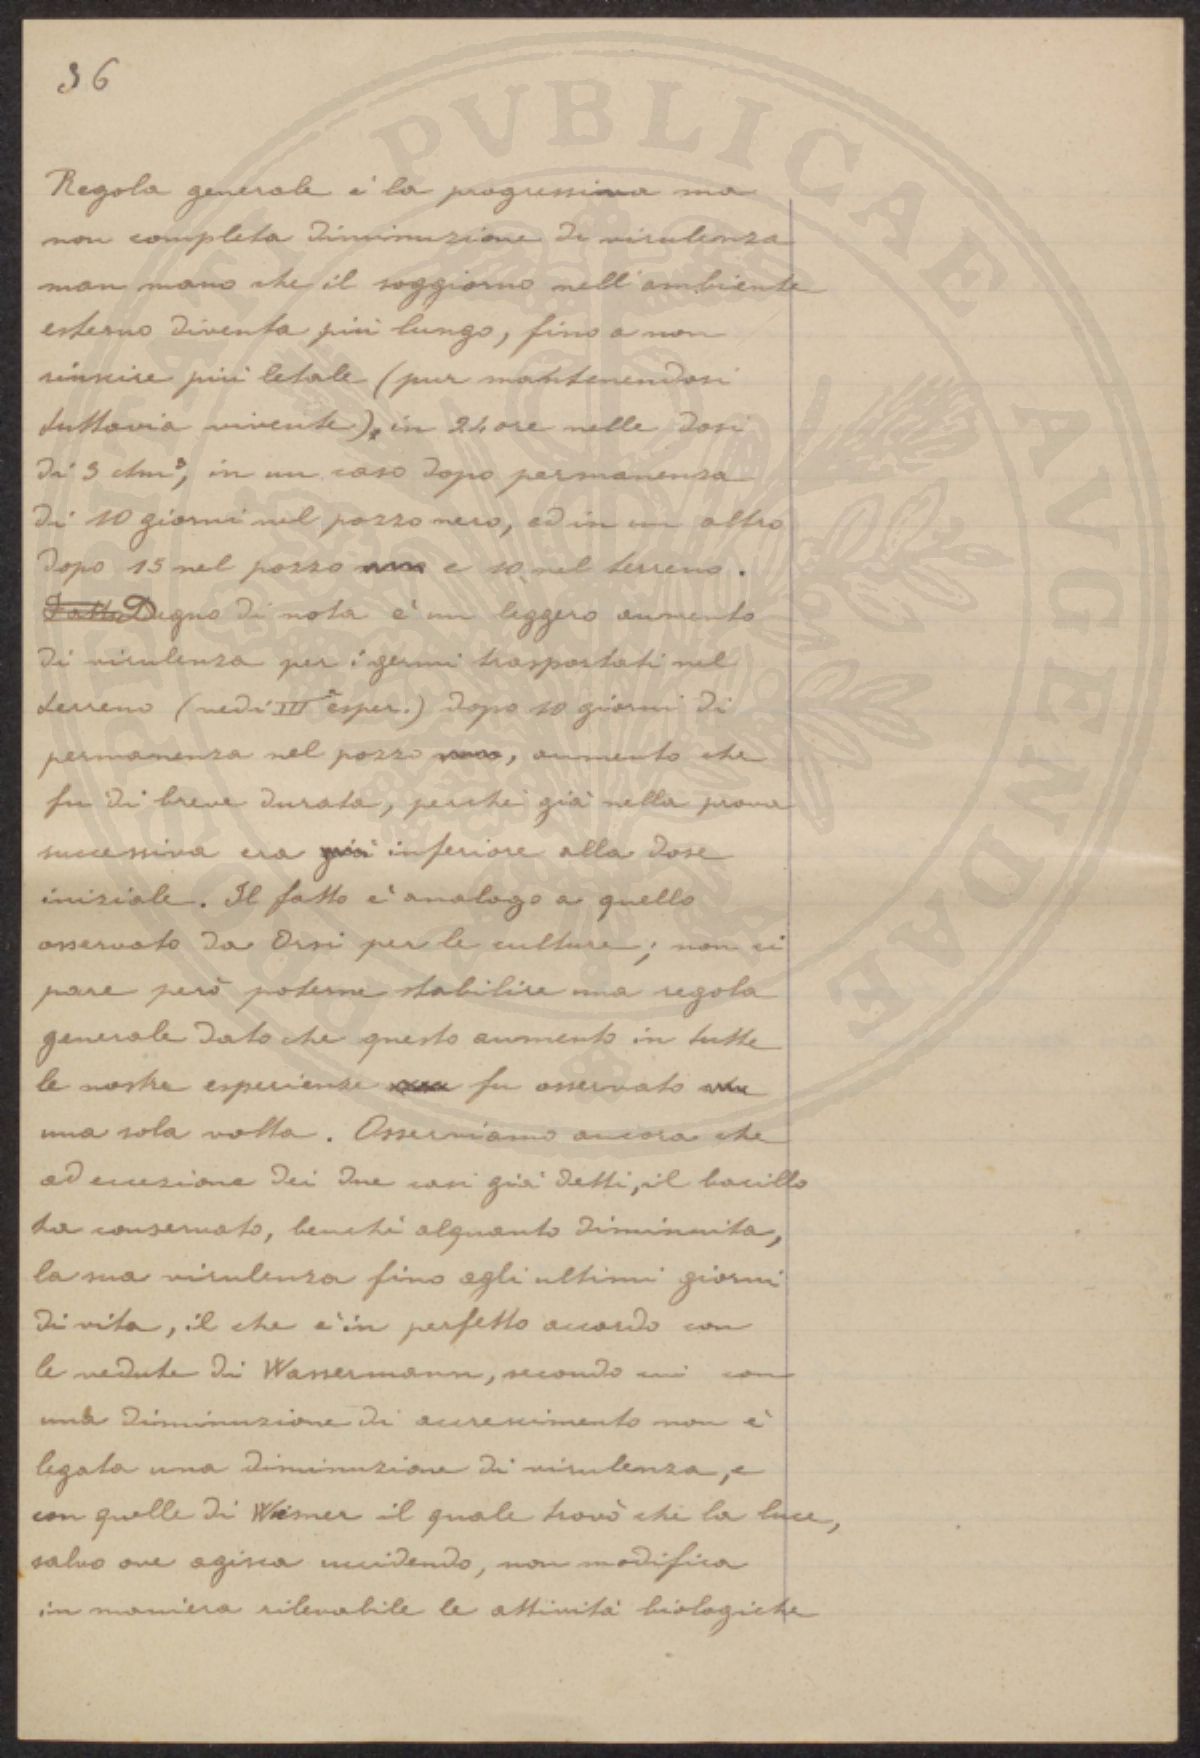 36
Regola generale è la progressiva ma
non completa diminuzione di virulenza
man mano che il soggiorno nell'ambiente
esterno diventa più lungo, fino a non
riuscire più letale (pur mantenendosi
tuttavia vivente), in 24 ore nelle dosi
di 3 ctm³, in un caso dopo permanenza
di 10 giorni nel pozzo nero, ed in un altro
dopo 15 nel pozzo e 10 nel terreno.
Degno di nota è un leggero aumento
di virulenza per i germi trasportati nel
terreno (vedi IIIª esper.) dopo 10 giorni di
permanenza nel pozzo, aumento che
fu di breve durata, perchè già nella prova
successiva era già inferiore alla dose
iniziale. Il fatto è analogo a quello
osservato da Orsi per le culture; non ci
pare però poterne stabilire una regola
generale dato che questo aumento in tutte
le nostre esperienze fu osservato
una sola volta. Osserviamo ancora che
ad eccezione dei due casi già detti, il bacillo
ha conservato, benchè alquanto diminuita,
la sua virulenza fino agli ultimi giorni
di vita, il che è in perfetto accordo con
le vedute di Wassermann, secondo cui con
una diminuzione di accrescimento non è
legata una diminuzione di virulenza, e
con quelle di Wiesner il quale trovò che la luce,
salvo ove agisca uccidendo, non modifica
in maniera rilevabile le attività biologiche
PVBLICAE AVGENDAE